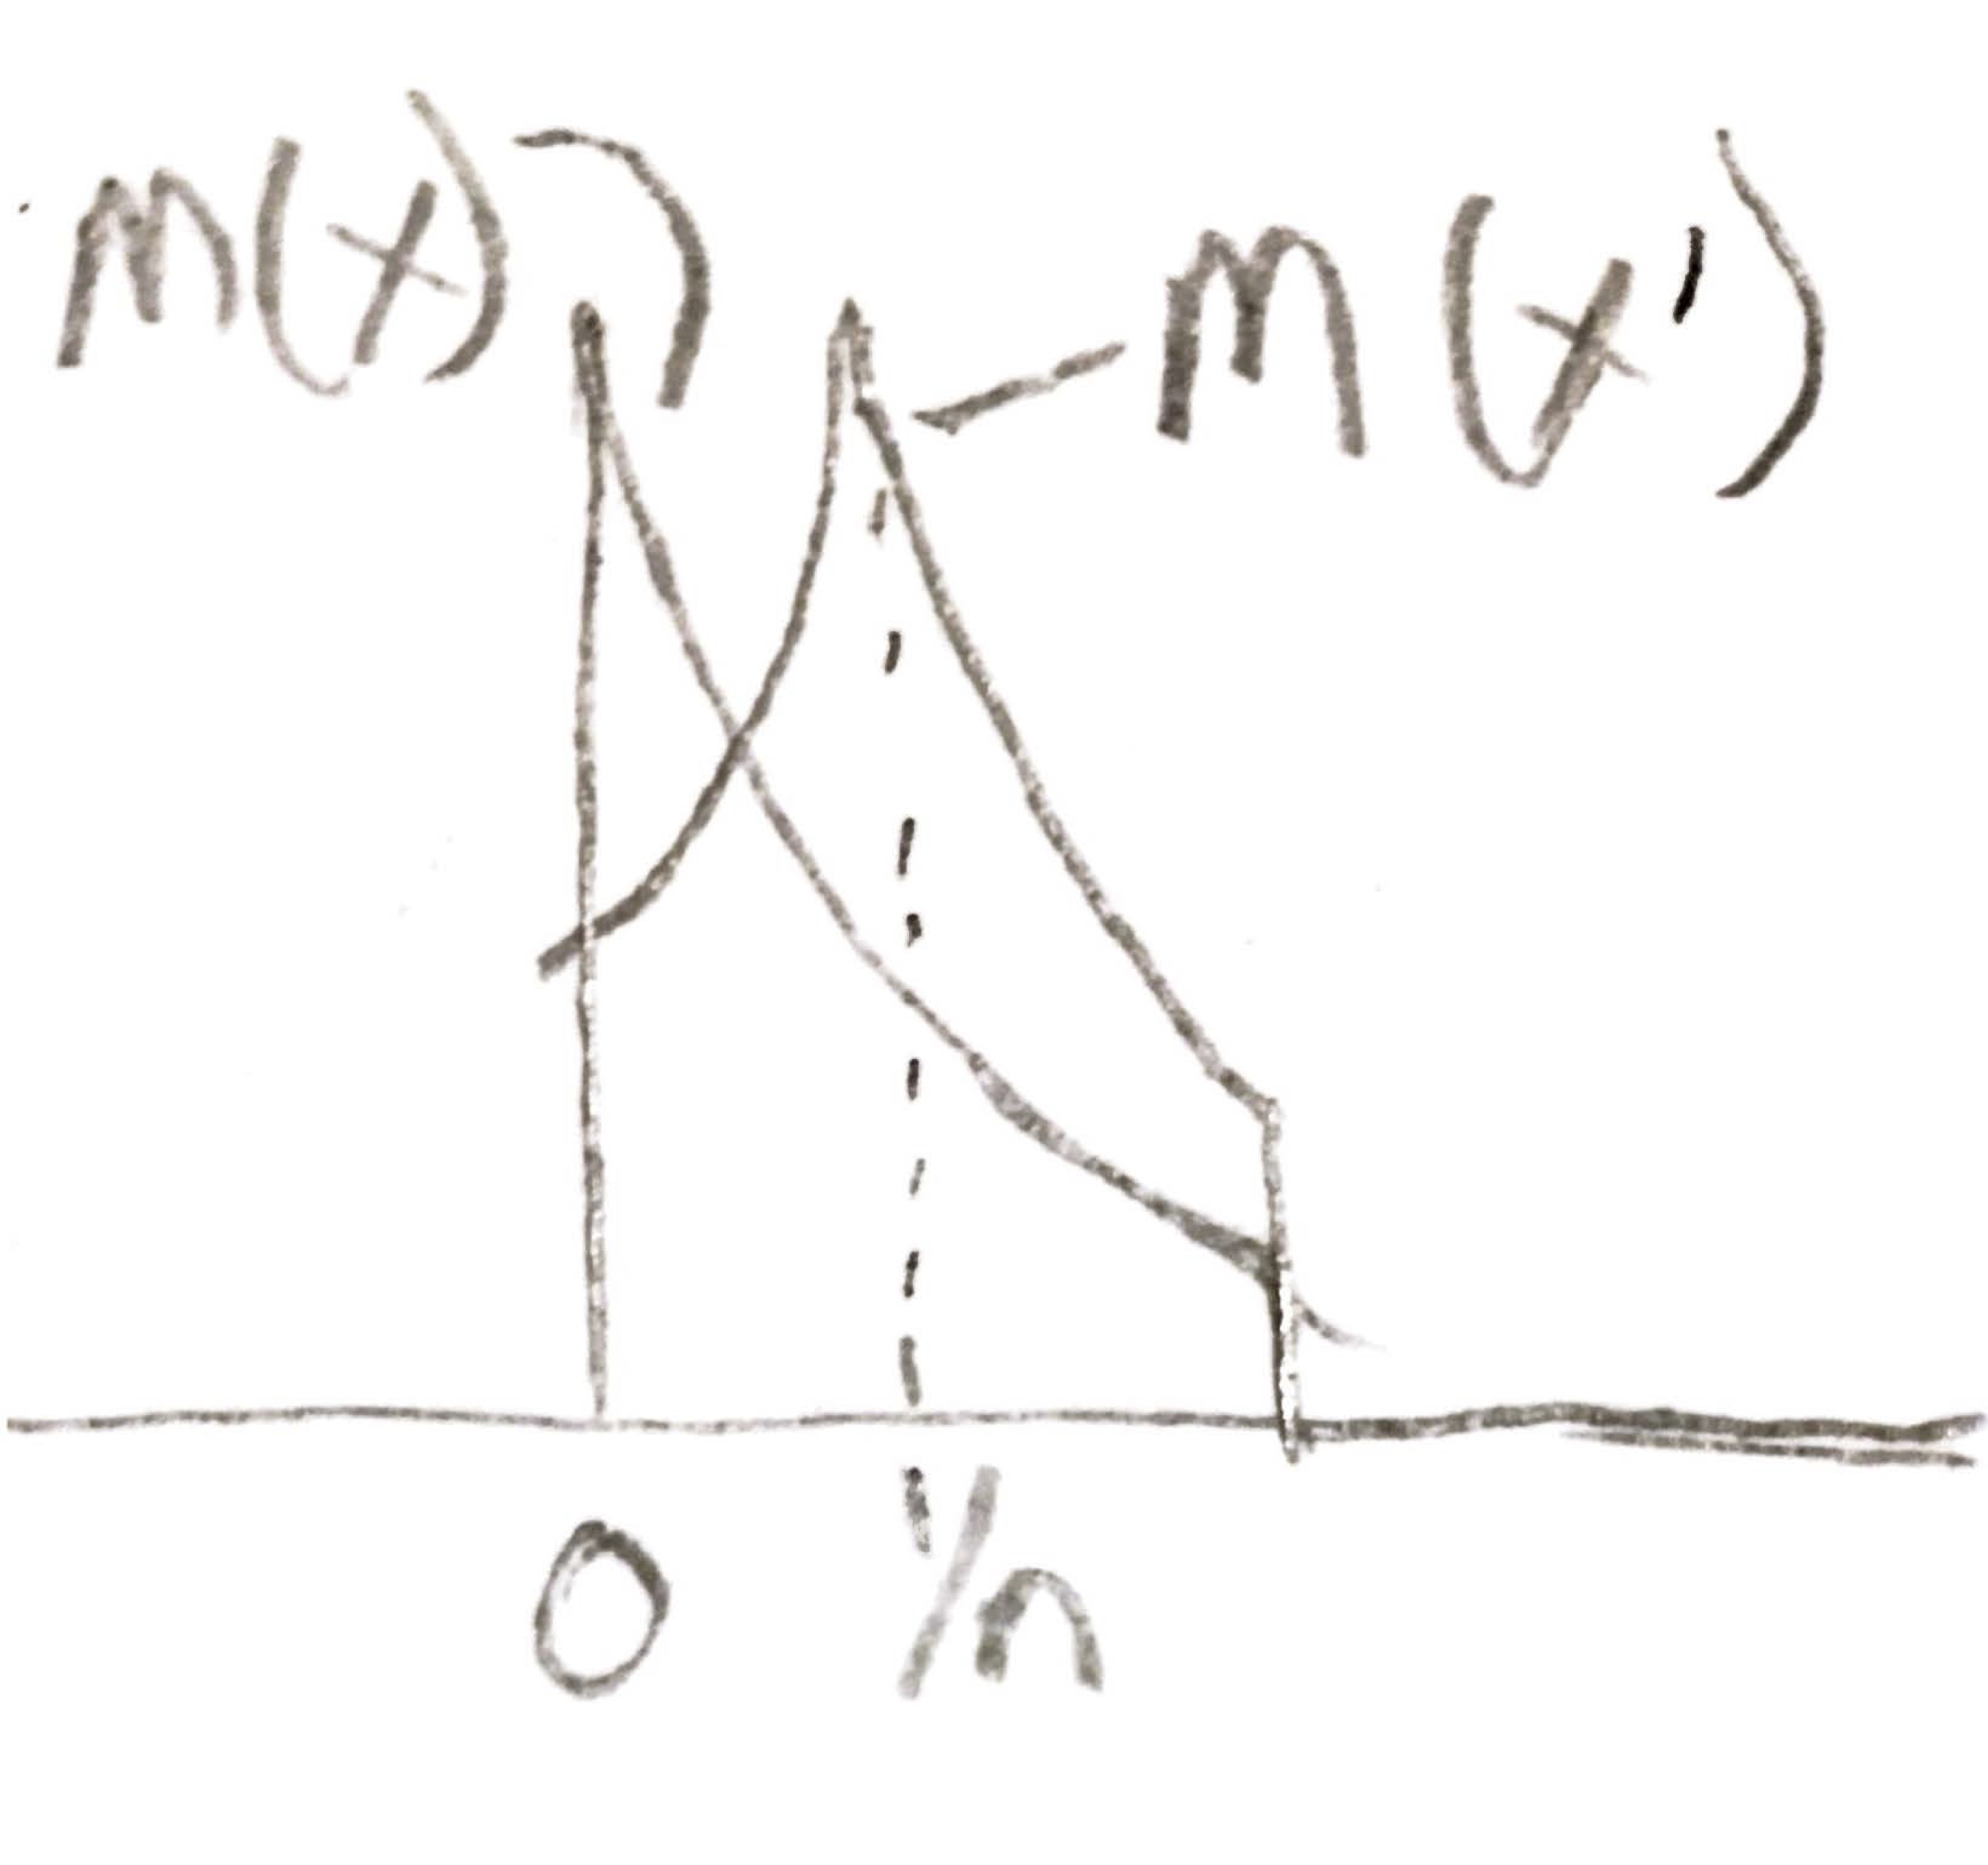 M(x)
M(x')
0
1/n